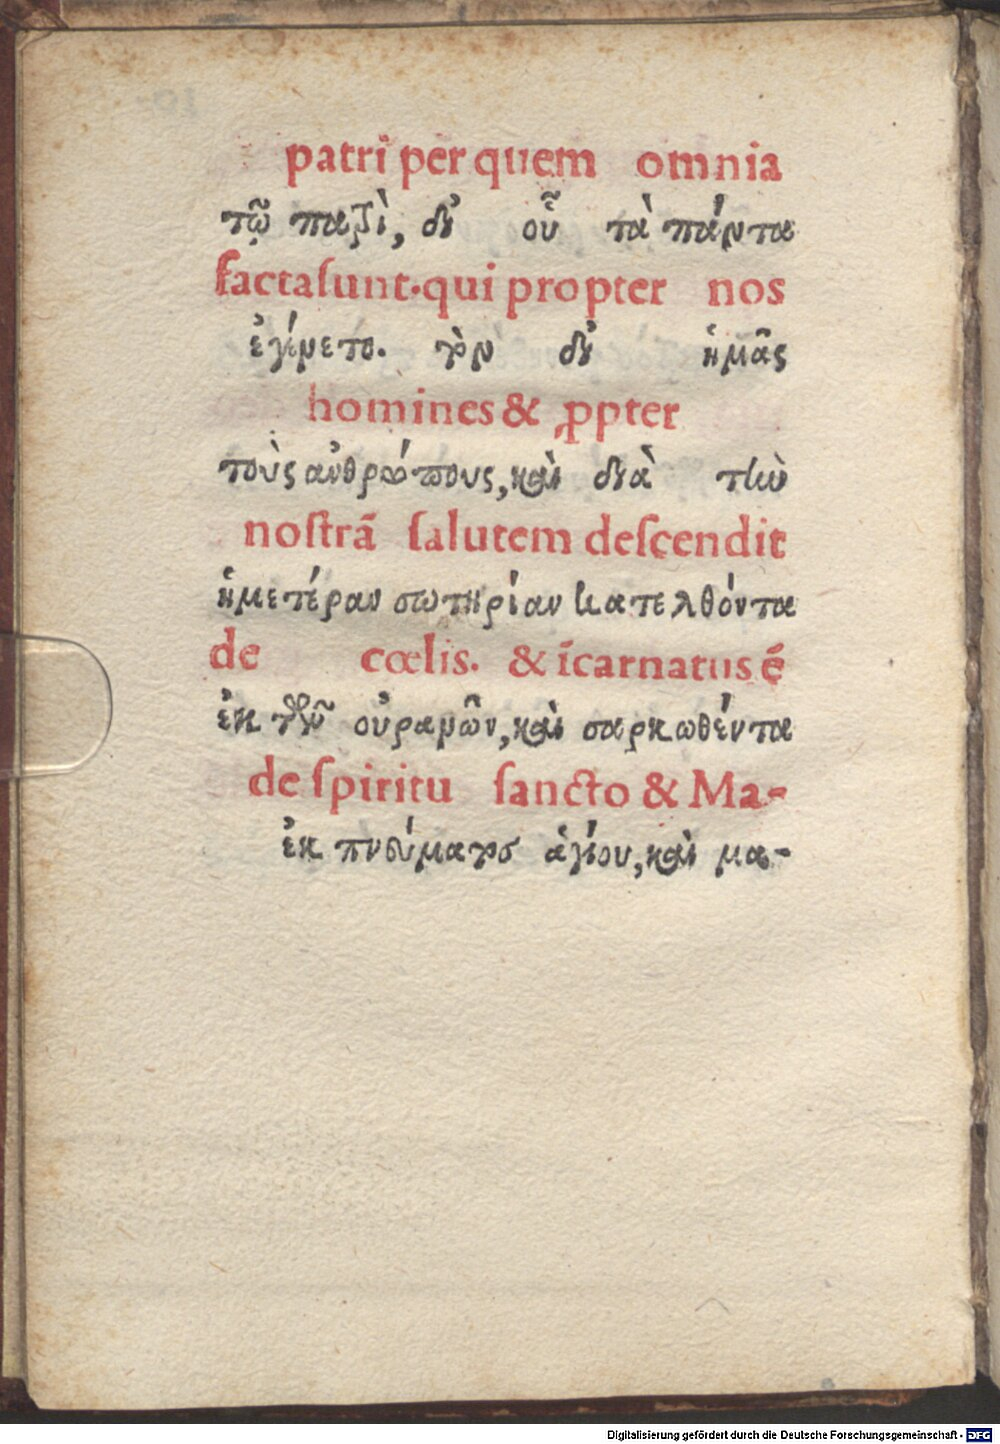 patri per quem omnia
τῷ πατρὶ, δι' οὗ τὰ πάντα
factasunt·qui propter nos
ἐγένετο. τὸν δι' ἡμᾶς
homines & ꝓpter
τοὺς ἀνθρώπους, καὶ διὰ τὴν
noſtrā ſalutem deſcendit
ἡμετέραν σωτηρίαν κατελθόντα
de cœlis. & īcarnatus ē
ἐκ τῶν οὐρανῶν, καὶ σαρκωθέντα
de ſpiritu ſancto & Ma-
ἐκ πνεύματος ἁγίου, καὶ μα-
Digitalisierung gefördert durch die Deutsche Forschungsgemeinschaft - DFG